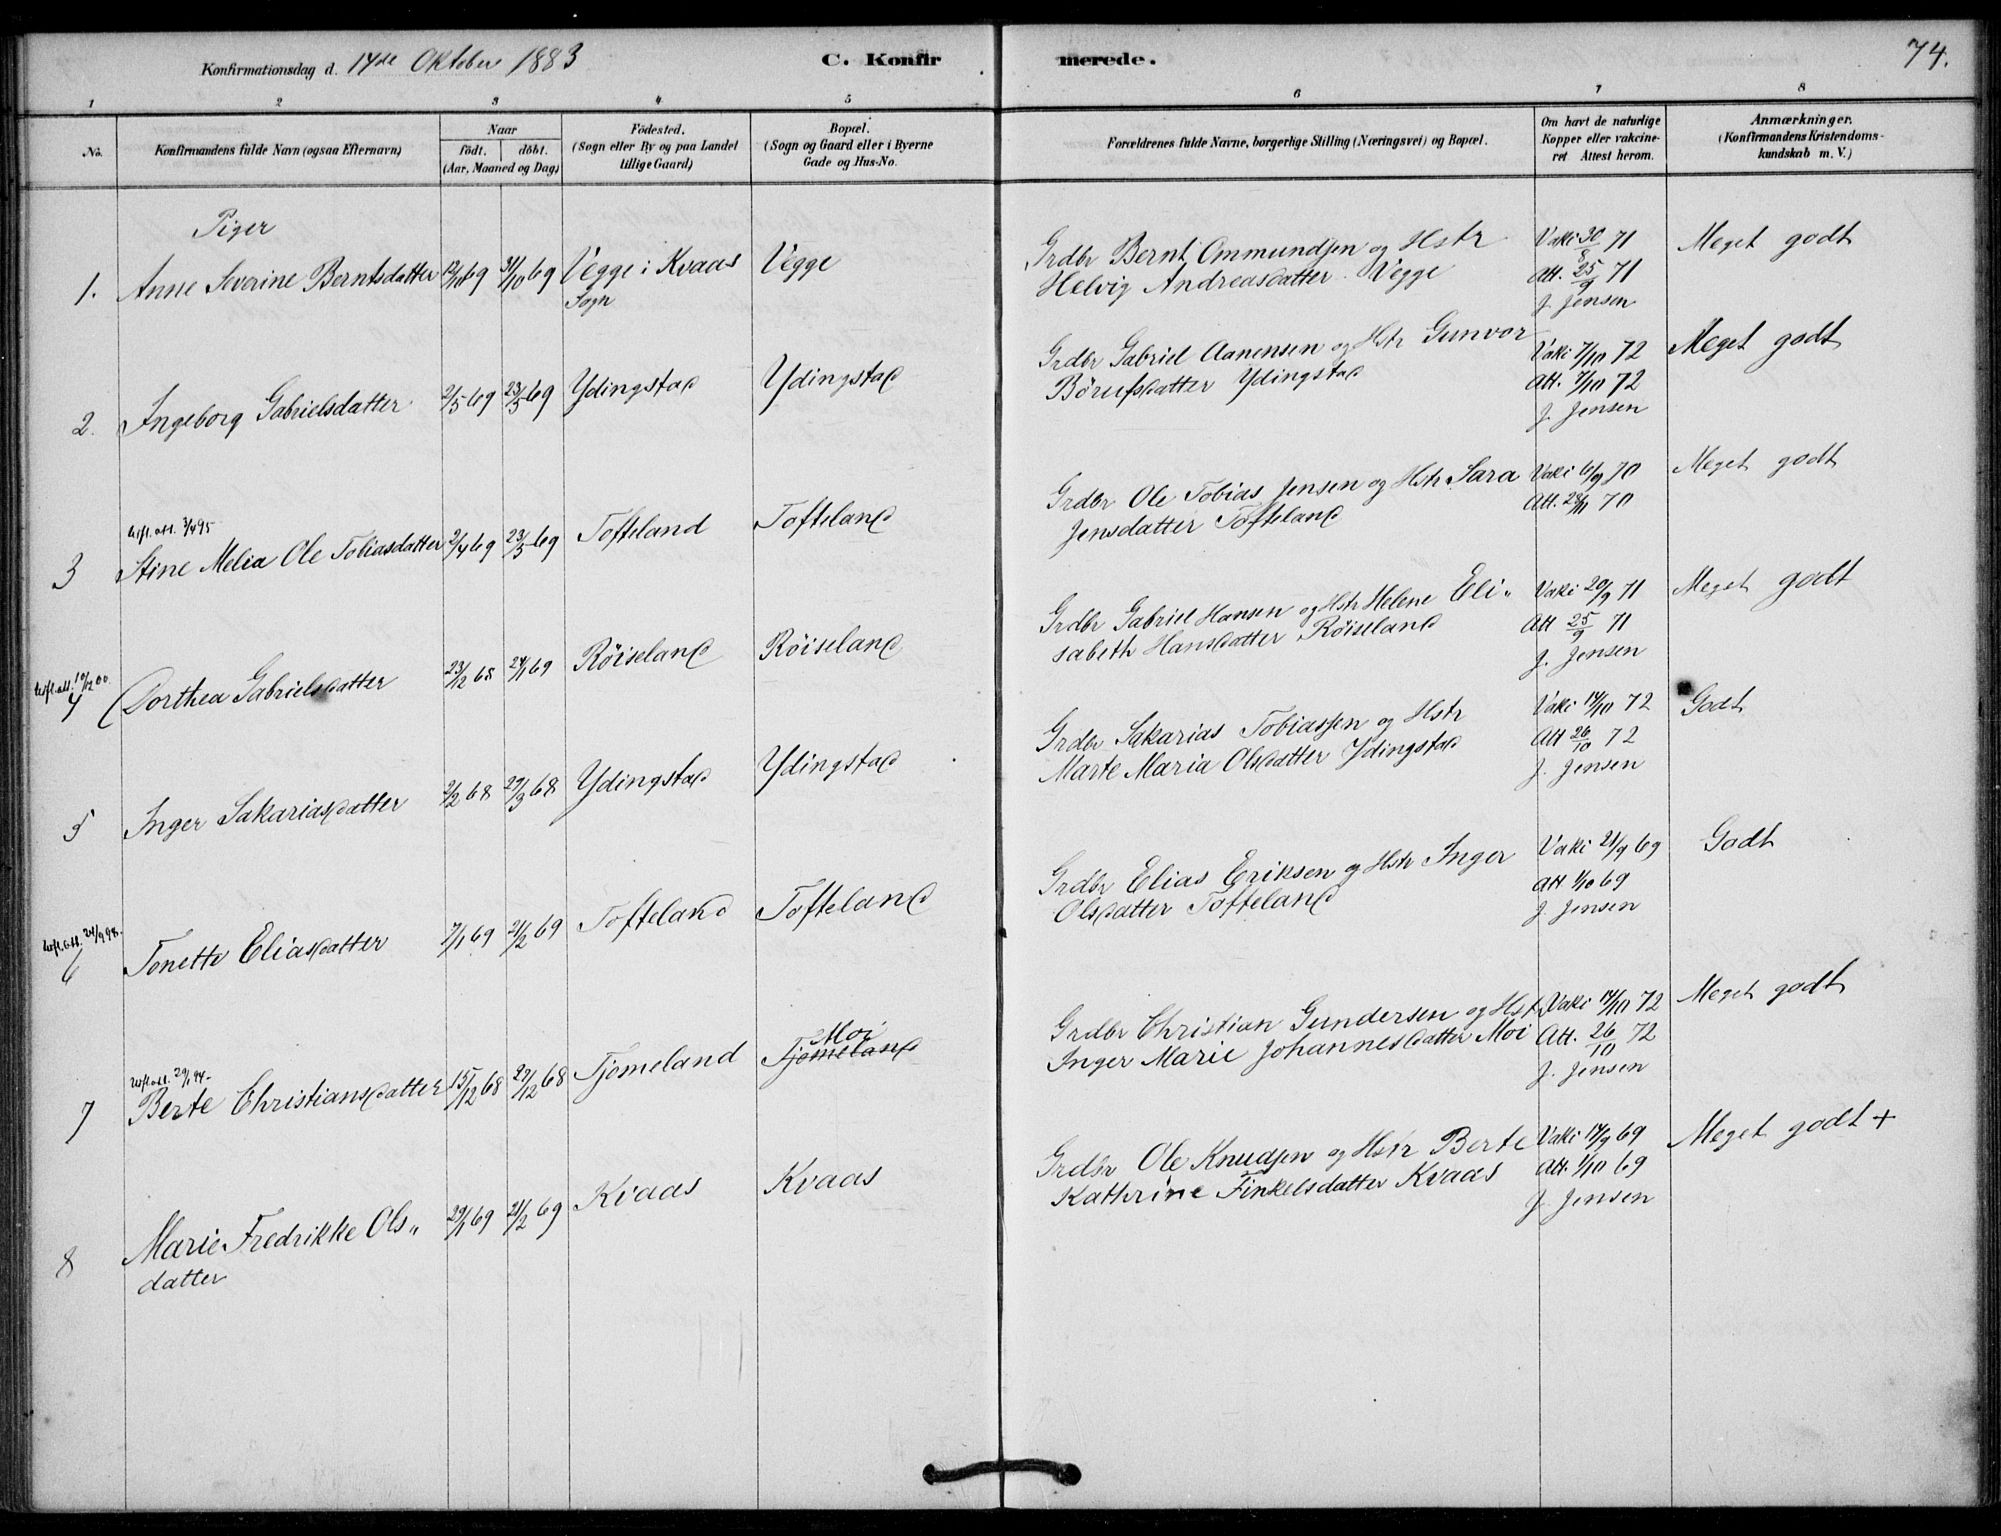 Konfirmationsdag d. 14de Oktober 1883 C. Konfirmerede. 74.
1 2 3 4 5 6 7 8
No. Konfirmandens fulde Navn (ogsaa Efternavn) Naar födt. döbt. (Aar, Maaned og Dag) Födested. (Sogn eller By og paa Landet tillige Gaard) Bopæl. (Sogn og Gaard eller i Byerne Gade og Hus-No. Forældrenes fulde Navne, borgerlige Stilling (Næringsvei) og Bopæl. Om havt de naturlige Kopper eller vakcineret Attest herom. Anmærkninger. (Konfirmandens Kristendomskundskab m. V.)
Piger
1. Anne Severine Berntsdatter 12/10 69 31/10 69 Vegge i Kvaas Sogn Vegge Grdbr Bernt Ommundsen og Hstr Vaki 30/8 71 Meget godt
Helvig Andreasdatter Vegge Att. 25/9 71
J. Jensen
2. Ingeborg Gabrielsdatter 2/5 69 23/5 69 Ydingstad Ydingstad Grdbr Gabriel Aanensen og Hstr Gunvor Vaki 7/10 72 Meget godt
Börufsdatter Ydingstad Att. 7/10 72
J. Jensen
Utfl. att. 3/4 95
3 Stine Melia Ole Tobiasdatter 2/4 69 23/5 69 Tofteland Tofteland Grdbr Ole Tobias Jensen og Hstr Sara Vaki 6/9 70 Meget godt
Jensdatter Tofteland Att. 28/11 70
Utfl. att. 10/12 00
4 Dorthea Gabrielsdatter 23/12 68 24/1 69 Röiseland Röiseland Grdbr Gabriel Hansen og Hstr Helene Eli„ Vaki 20/9 71 Meget godt
sabeth Hansdatter Röiseland Att 25/9 71
J. Jensen
5 Inger Sakariasdatter 2/2 68 29/3 68 Ydingstad Ydingstad Grdbr Sakarias Tobiassen og Hstr Vaki 14/10 72 Godt
Marte Maria Olsdatter Ydingstad Att 26/10 72
J. Jensen
Utfl. att. 24/9 98.
6 Tonette Eliasdatter 7/1 69 21/2 69 Tofteland Tofteland Grdbr Elias Eriksen og Hstr Inger Vaki 21/9 69 Godt
Olsdatter Tofteland Att 1/10 69
J. Jensen
Utfl. att. 29/1 94.
7 Berte Christiansdatter 15/12 68 27/12 68 Tjomeland Tjomeland Moi Grdbr Christian Gundersen og Hstr Vaki 14/10 72 Meget godt
Inger Marie Johannesdatter Moi Att. 26/10 72
J. Jensen
8 Marie Fredrikke Ols„ 29/1 69 21/2 69 Kvaas Kvaas Grdbr Ole Knudsen og Hstr Berte Vaki 14/9 69 Meget godt +
datter Kathrine Finkelsdatter Kvaas Att. 1/10 69
J. Jensen